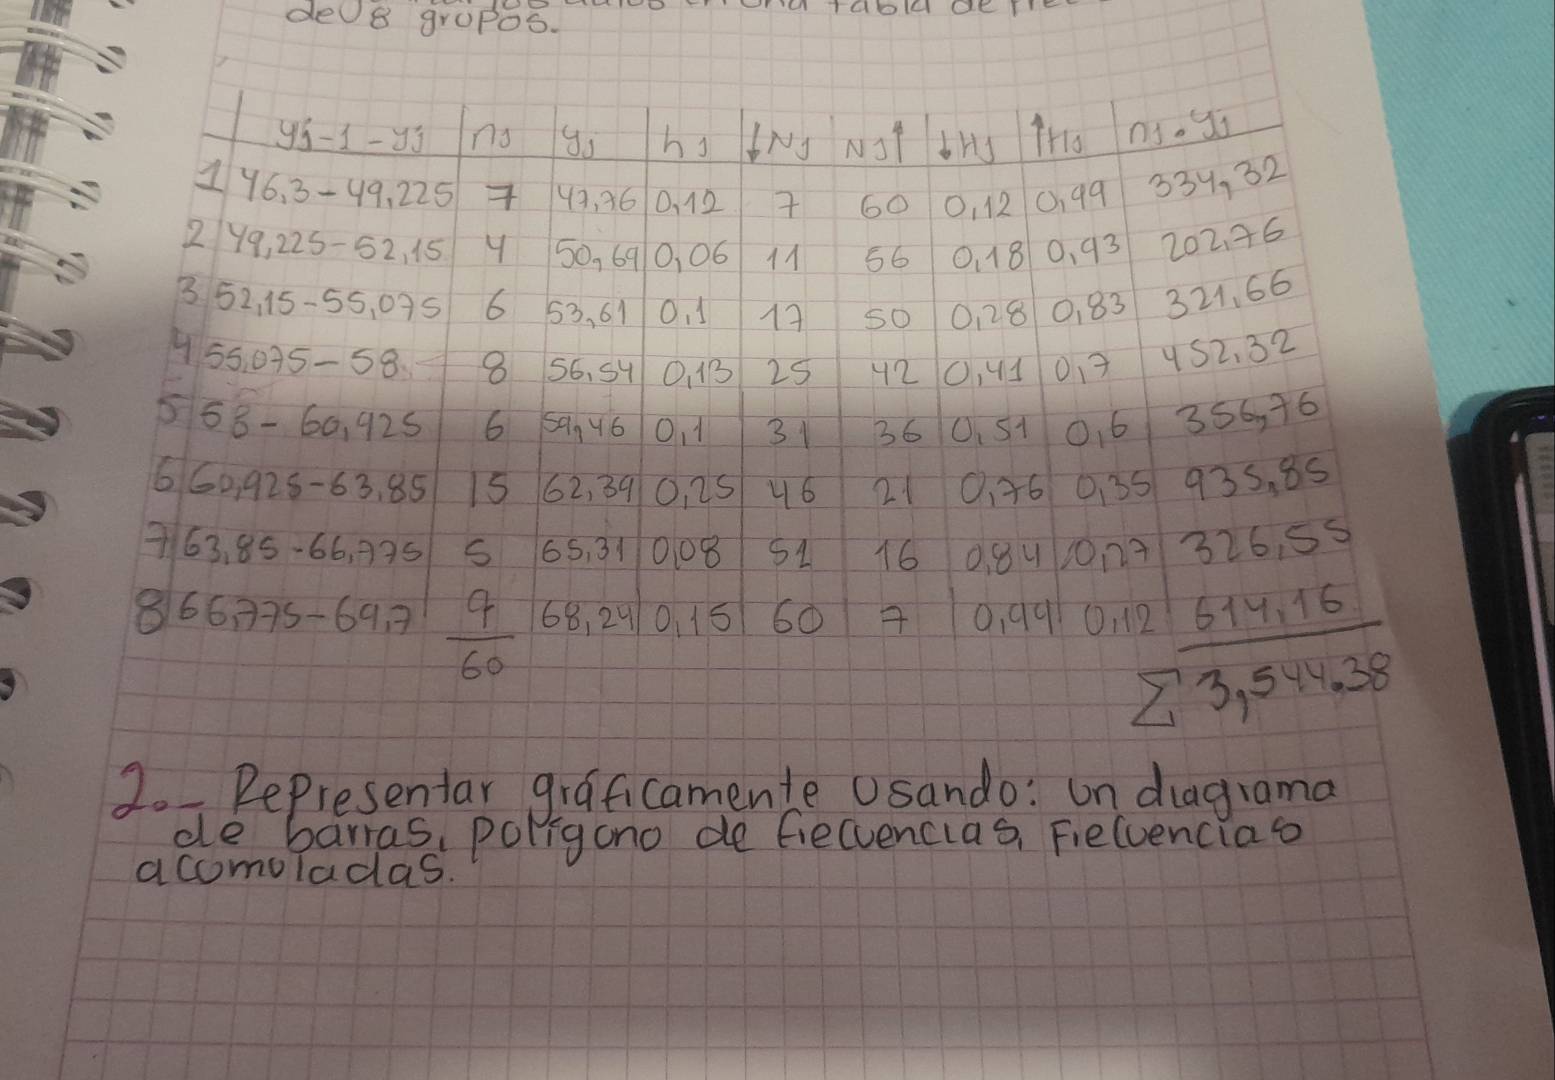 de 8 grupos.
yj-1-yj nj yj hj ↓Nj Nj↑ ↓Hj ↑Hj nj.yj
1 46,3-49,225 7 47,76 0,12 7 60 0,12 0,99 334,32
2 49,225-52,15 4 50,69 0,06 11 56 0,18 0,93 202,76
3 52,15-55,075 6 53,61 0,1 17 50 0,28 0,83 321,66
4 55,075-58 8 56,54 0,13 25 42 0,41 0,7 452,32
5 58-60,925 6 59,46 0,1 31 36 0,51 0,6 356,76
6 60,925-63,85 15 62,39 0,25 46 21 0,76 0,35 935,85
7 63,85-66,775 5 65,31 0,08 51 16 0,84 0,27 326,55
8 66,775-69,7 9 68,24 0,15 60 7 0,99 0,12 614,16
60
Σ 3,544.38
2.- Representar gráficamente usando: un diagrama
de barras, polígono de frecuencias, Frecuencias
acomuladas.